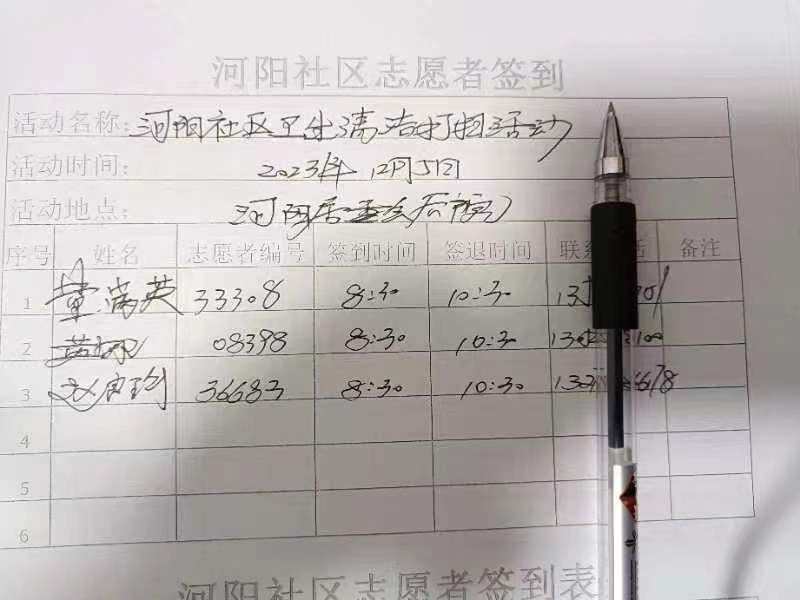 河阳社区志愿者签到
活动名称：河阳社区卫生清洁打扫活动
活动时间：2023年12月5日
活动地点：河阳居委会后
序号 姓名 志愿者编号 签到时间 签退时间 联系 话 备注
1 童满英 33308 8:30 10:30
2 黄 08398 8:30 10:30
3 赵 36683 8:30 10:30
4
5
6
河阳社区志愿者签到表